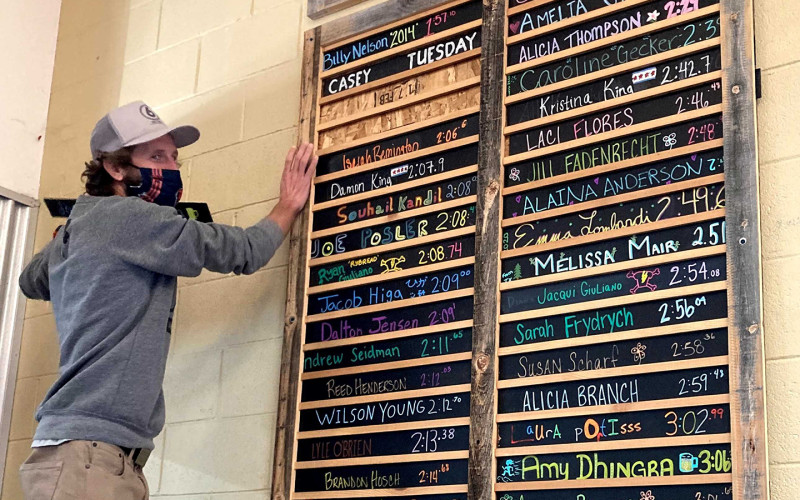 Billy Nelson '2014' 1:57.10
CASEY TUESDAY
Isaiah Remington 2:06.
Damon King 2:07.9
Souhail Kandil 2:08
JOE POSLER 2:08.
Ryan "RYBREAD" Giuliano 2:08.74
Jacob Higa 2:09.00
Dalton Jensen 2:09.
ndrew Seidman 2:11.65
REED HENDERSON 2:12.03
WILSON YOUNG 2:12.70
LYLE O'BRIEN 2:13.38
BRANDON HOSCH 2:14.63
AMELIA
ALICIA THOMPSON
Caroline Gecker 2:3
Kristina King 2:42.7
LACI FLORES 2:46.43
JILL FADENRECHT 2:48.
ALAINA ANDERSON 2:
Emma Lombardi 2:49.6
MELISSA MAIR 2:51
Jacqui Giuliano 2:54.08
Sarah Frydrych 2:56.04
SUSAN SCHARF 2:58.36
ALICIA BRANCH 2:59.43
LaurA pOtIsss 3:02.99
Amy DHINGRA 3:06